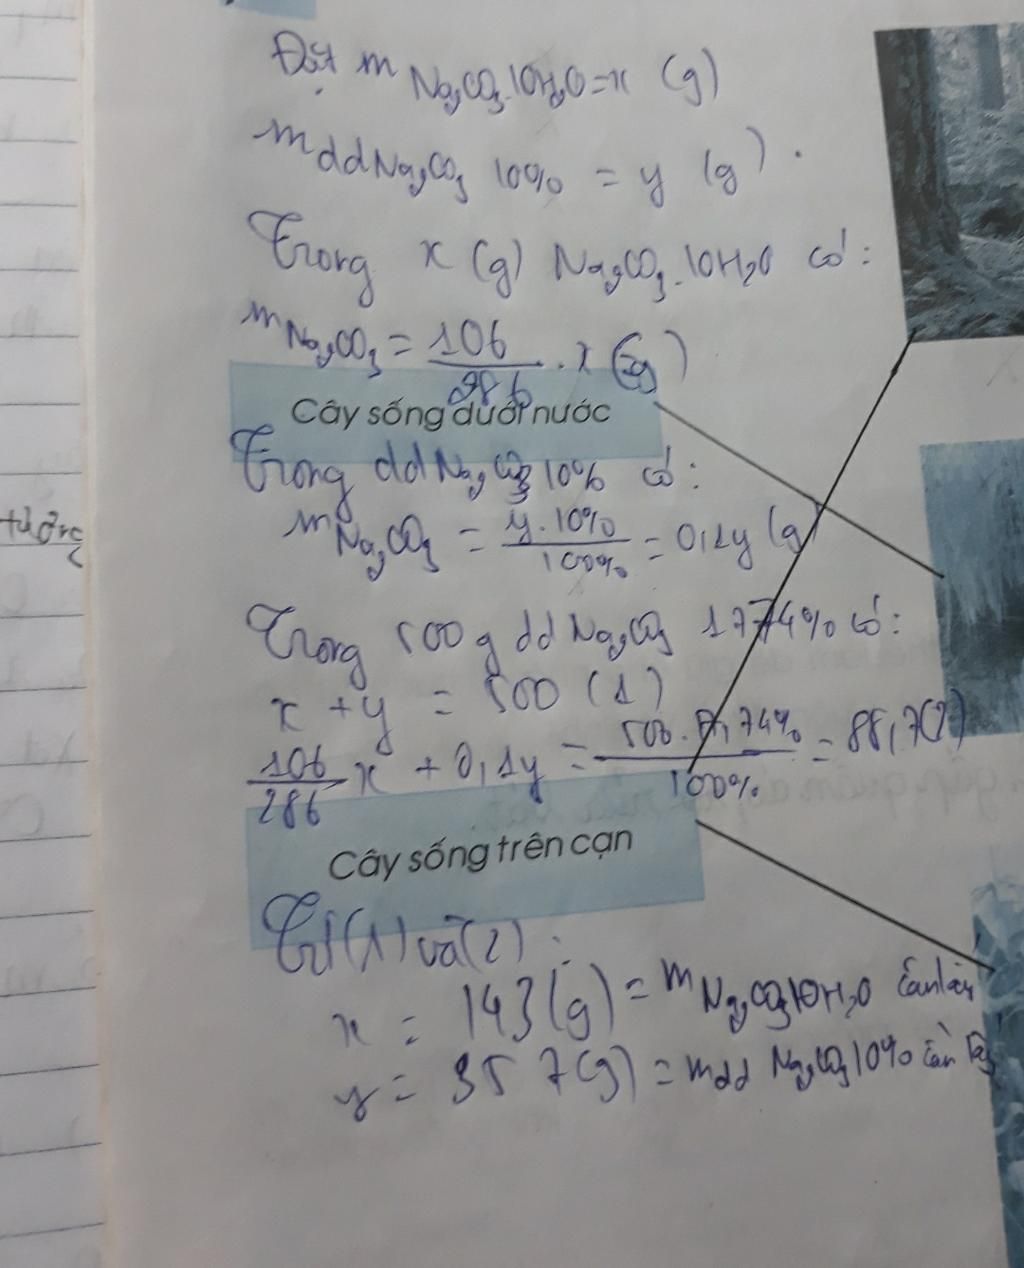 Đặt m Na2CO3.10H2O = x (g)
m dd Na2CO3 10% = y (g).
Trong x (g) Na2CO3.10H2O có:
m Na2CO3 = 106/286 . x (g)
Cây sống dưới nước
Trong dd Na2CO3 10% có:
m Na2CO3 = y.10%/100% = 0,1y (g)
tường
Trong 500g dd Na2CO3 17,74% có:
x + y = 500 (1)
106/286 x + 0,1y = 500.17,74%/100% = 88,7 (2)
Cây sống trên cạn
Từ (1) và (2):
x = 143 (g) = m Na2CO3.10H2O cần lấy
y = 357 (g) = m dd Na2CO3 10% cần lấy